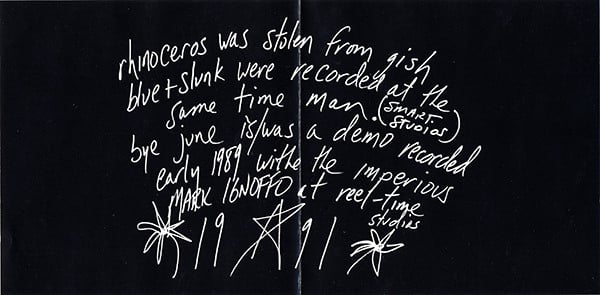 rhinoceros was stolen from gish
blue + slunk were recorded at the
same time man. (SMART STUDIOS)
bye june is/was a demo recorded
early 1989 withe the imperious
MARK IGNOFFO at reel-time
studios
19 91